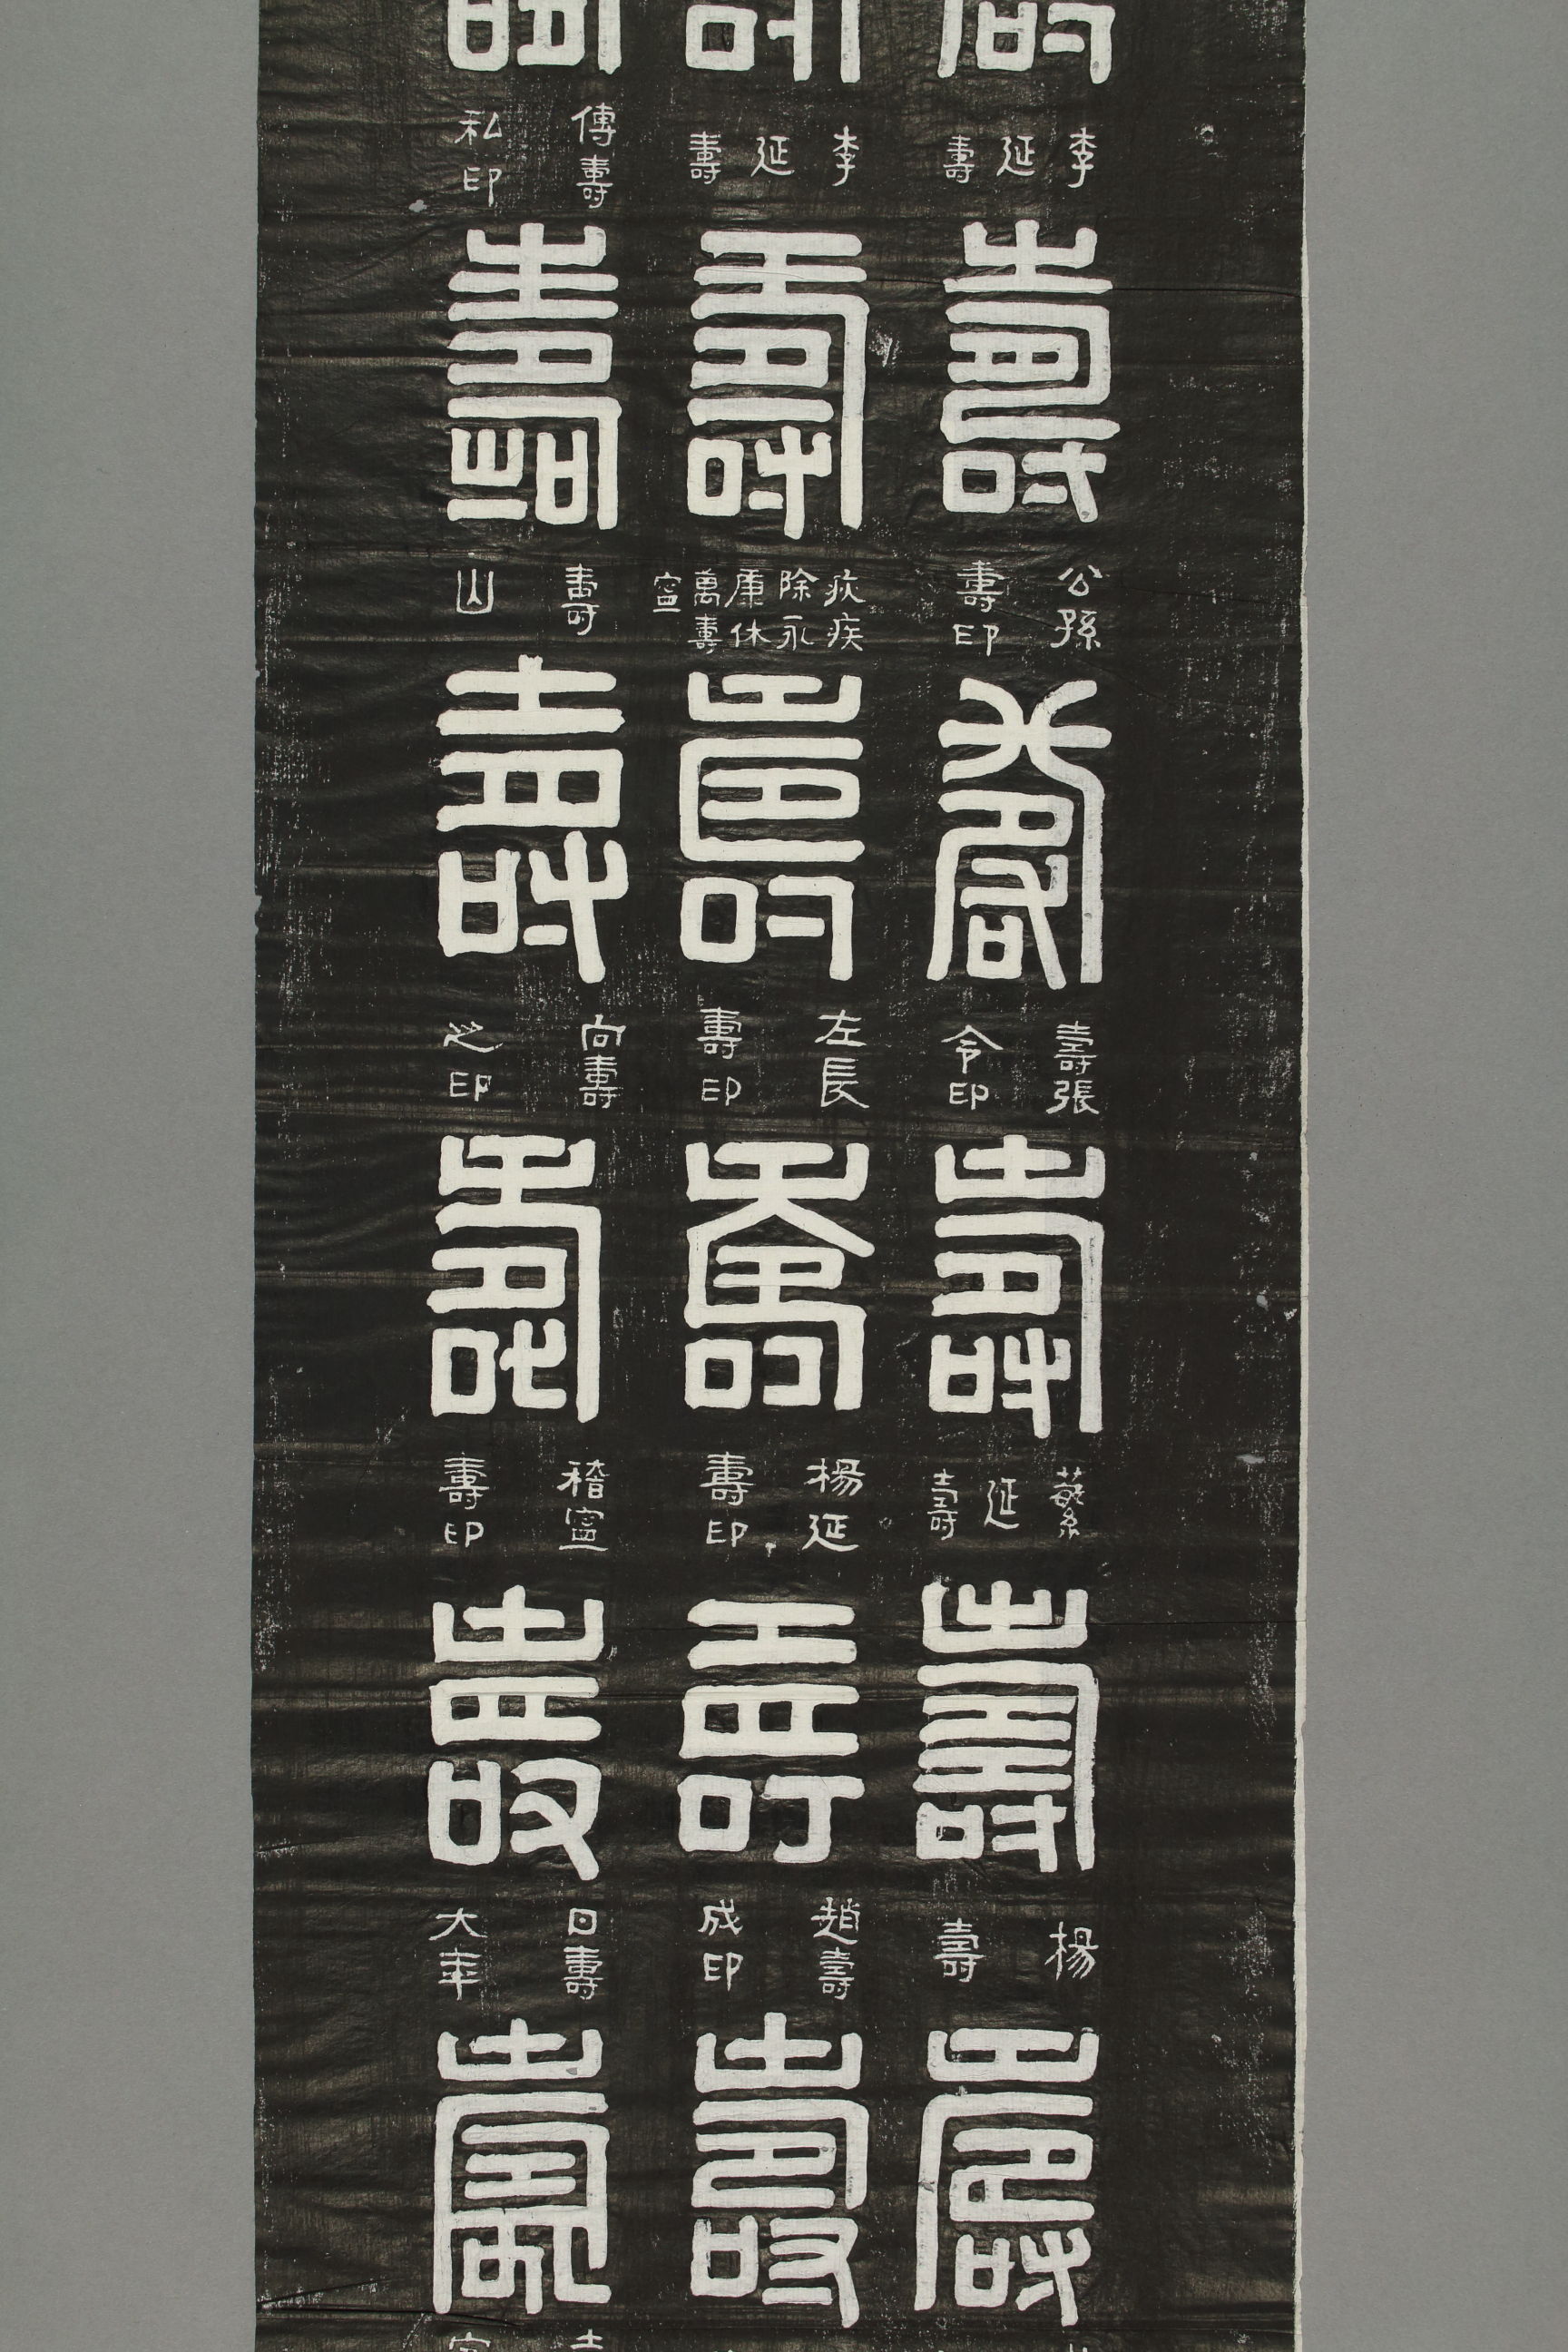 李延壽
壽
公孫壽印
壽
壽張令印
壽
蘩延壽
壽
楊壽
壽
李延壽
壽
疢疾除永康休萬壽寍
壽
左長壽印
壽
楊延壽印
壽
趙壽成印
壽
傳壽私印
壽
壽山
壽
向壽之印
壽
稽寍壽印
壽
日壽大年
壽